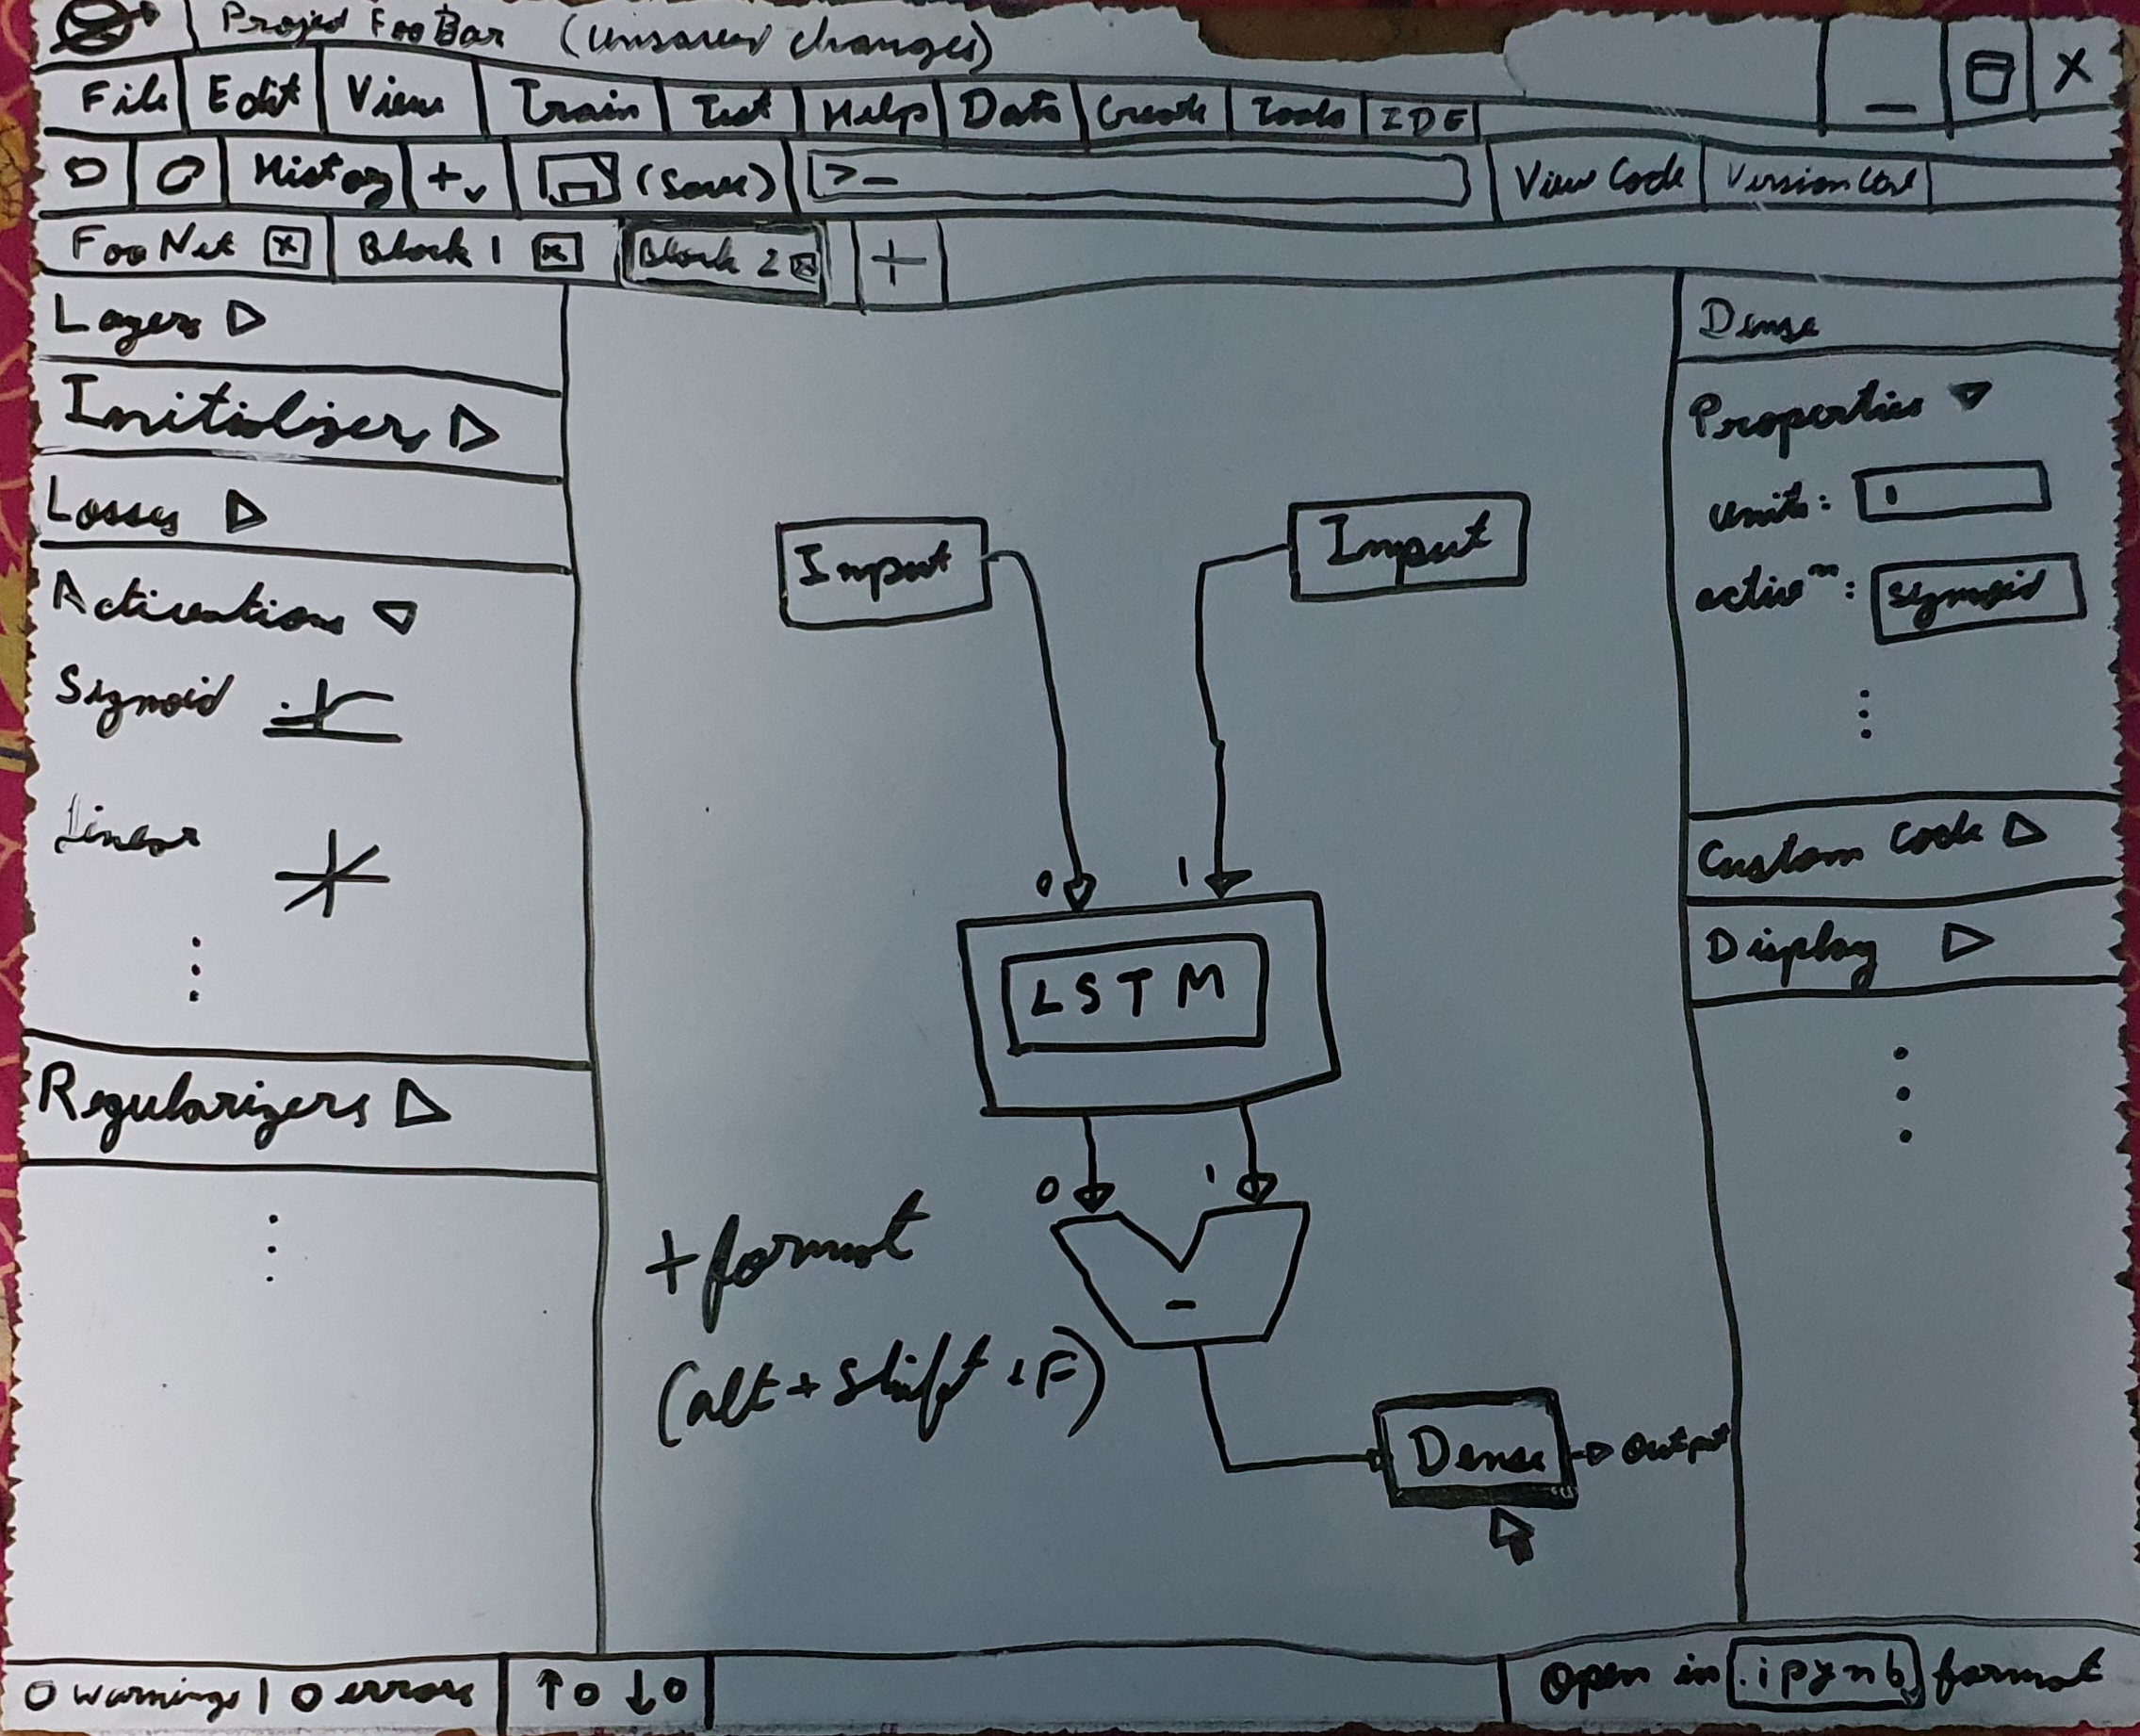 Project FooBar (unsaved changes)
_ X
File Edit View Train Test Help Data Create Tools IDE
History + (Save) >_ View Code Version Cont
FooNet x Block 1 x Block 2 x +
Layers
Initialisers
Losses
Activations
Sigmoid
Linear
Regularizers
Input Input
0 1
LSTM
0 1
-
+ format
(alt + Shift + F)
Dense Output
Dense
Properties
units: 1
activⁿ: sigmoid
Custom Code
Display
0 warnings | 0 errors ↑0 ↓0
Open in .ipynb format